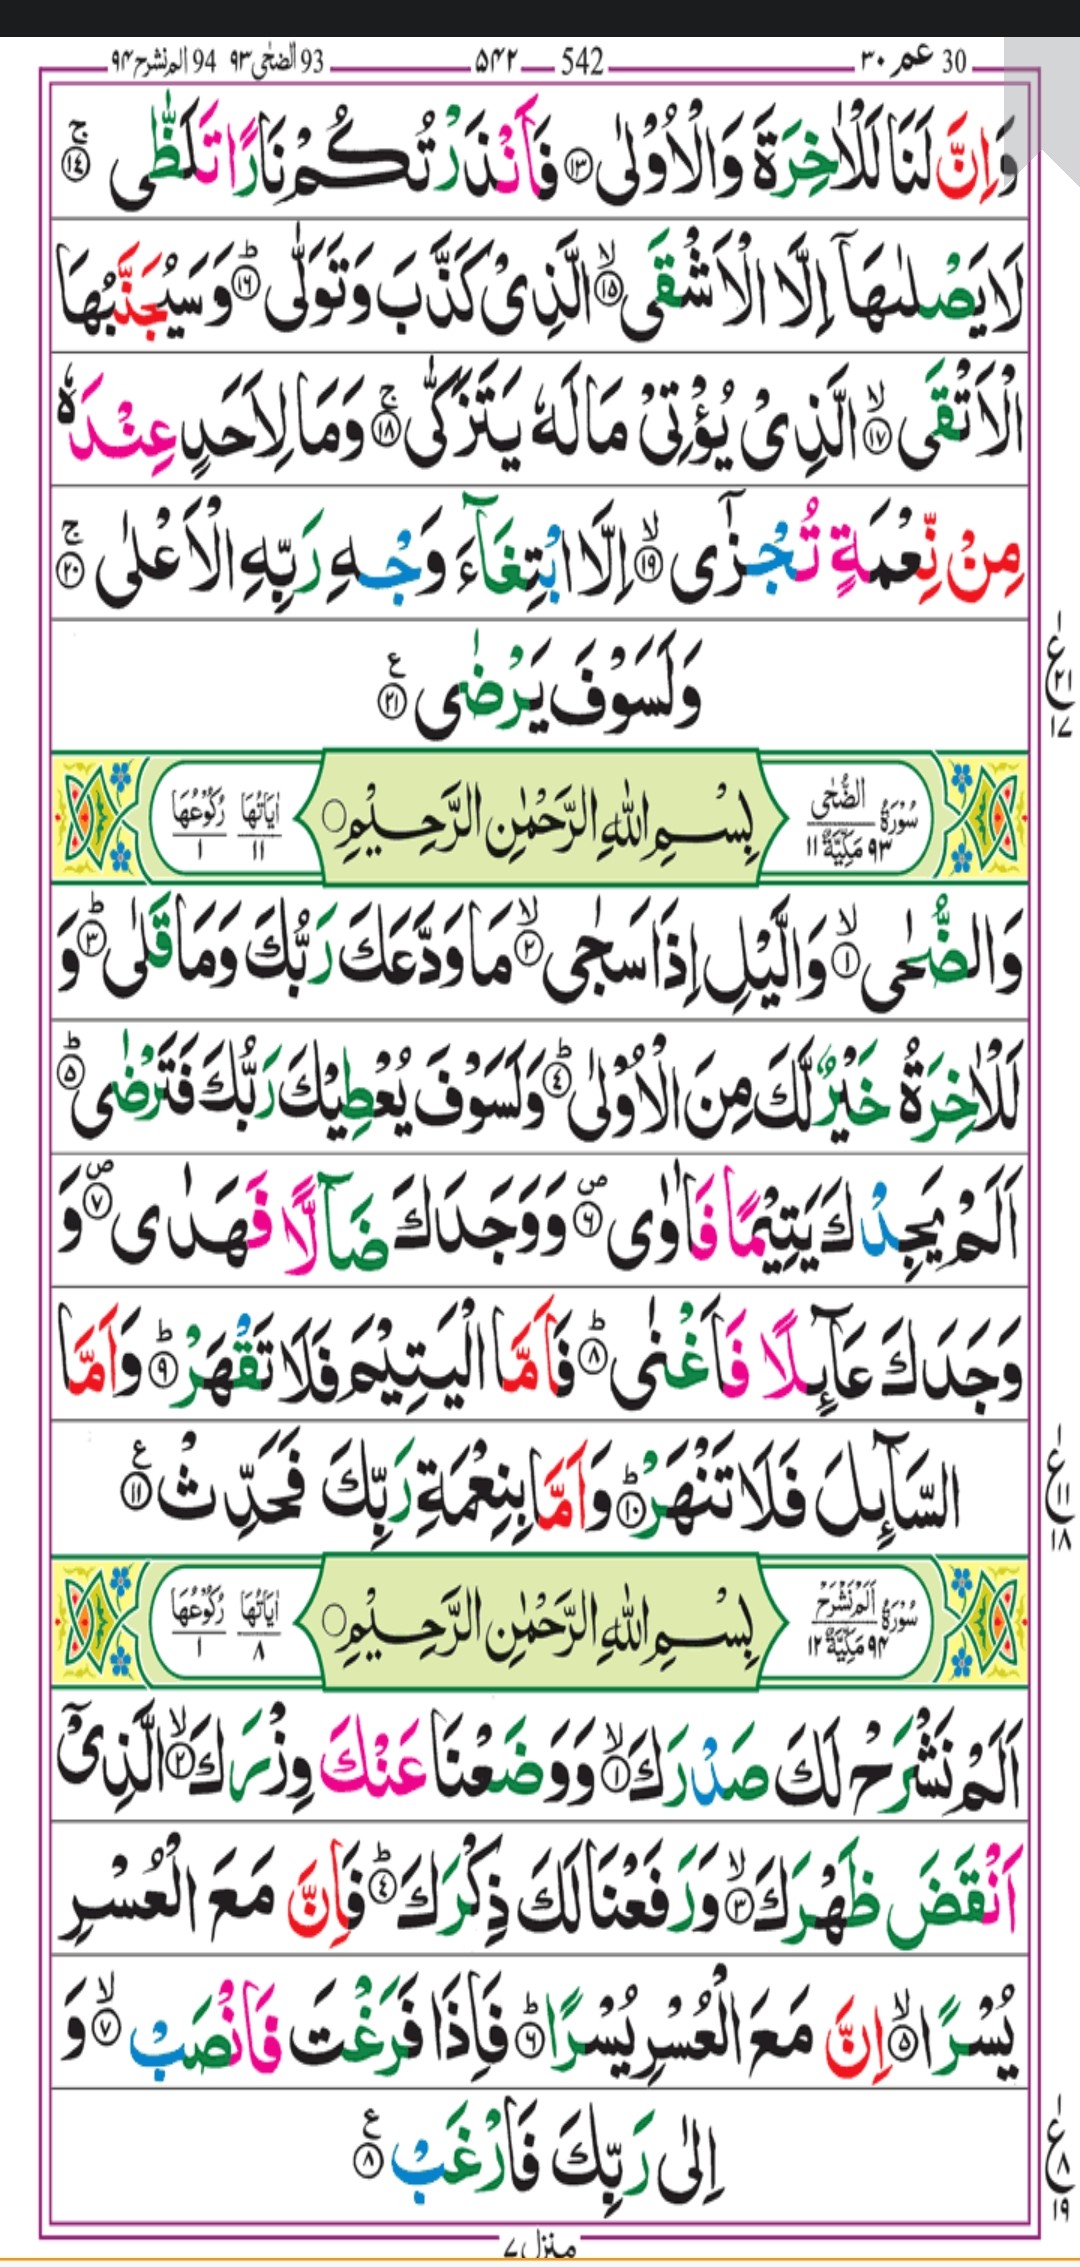 30 عم ۳۰ 542 ۵۴۲ 93 الضحٰی ۹۳ 94 الم نشرح ۹۴
وَاِنَّ لَنَا لَلْاٰخِرَةَ وَالْاُوْلٰى ۝١٣ فَاَنْذَرْتُكُمْ نَارًا تَلَظّٰى ۝١٤ ج
لَا يَصْلٰىهَآ اِلَّا الْاَشْقَى ۝١٥ۙ الَّذِىْ كَذَّبَ وَتَوَلّٰى ۝١٦ؕ وَسَيُجَنَّبُهَا
الْاَتْقَى ۝١٧ۙ الَّذِىْ يُؤْتِىْ مَالَهٗ يَتَزَكّٰى ۝١٨ۚ وَمَا لِاَحَدٍ عِنْدَهٗ
مِنْ نِّعْمَةٍ تُجْزٰٓى ۝١٩ۙ اِلَّا ابْتِغَآءَ وَجْهِ رَبِّهِ الْاَعْلٰى ۝٢٠ۚ
وَلَسَوْفَ يَرْضٰى ۝٢١ ع
ع ٢١ ١٧
سُوْرَةُ الضُّحٰى ٩٣ مَكِّيَّةٌ ١١ بِسْمِ اللهِ الرَّحْمٰنِ الرَّحِيْمِ اٰيَاتُهَا ١١ رُكُوْعُهَا ١
وَالضُّحٰى ۝١ۙ وَالَّيْلِ اِذَا سَجٰى ۝٢ۙ مَا وَدَّعَكَ رَبُّكَ وَمَا قَلٰى ۝٣ؕ وَ
لَلْاٰخِرَةُ خَيْرٌ لَّكَ مِنَ الْاُوْلٰى ۝٤ؕ وَلَسَوْفَ يُعْطِيْكَ رَبُّكَ فَتَرْضٰى ۝٥ؕ
اَلَمْ يَجِدْكَ يَتِيْمًا فَاٰوٰى ۝٦ص وَوَجَدَكَ ضَآلًّا فَهَدٰى ۝٧ص وَ
وَجَدَكَ عَآئِلًا فَاَغْنٰى ۝٨ؕ فَاَمَّا الْيَتِيْمَ فَلَا تَقْهَرْ ۝٩ؕ وَاَمَّا
السَّآئِلَ فَلَا تَنْهَرْ ۝١٠ؕ وَاَمَّا بِنِعْمَةِ رَبِّكَ فَحَدِّثْ ۝١١ ع
ع ١١ ١٨
سُوْرَةُ اَلَمْ نَشْرَحْ ٩٤ مَكِّيَّةٌ ١٢ بِسْمِ اللهِ الرَّحْمٰنِ الرَّحِيْمِ اٰيَاتُهَا ٨ رُكُوْعُهَا ١
اَلَمْ نَشْرَحْ لَكَ صَدْرَكَ ۝١ۙ وَوَضَعْنَا عَنْكَ وِزْرَكَ ۝٢ۙ الَّذِىْٓ
اَنْقَضَ ظَهْرَكَ ۝٣ۙ وَرَفَعْنَا لَكَ ذِكْرَكَ ۝٤ؕ فَاِنَّ مَعَ الْعُسْرِ
يُسْرًا ۝٥ۙ اِنَّ مَعَ الْعُسْرِ يُسْرًا ۝٦ؕ فَاِذَا فَرَغْتَ فَانْصَبْ ۝٧ۙ وَ
اِلٰى رَبِّكَ فَارْغَبْ ۝٨ ع
ع ٨ ١٩
منزل ۷